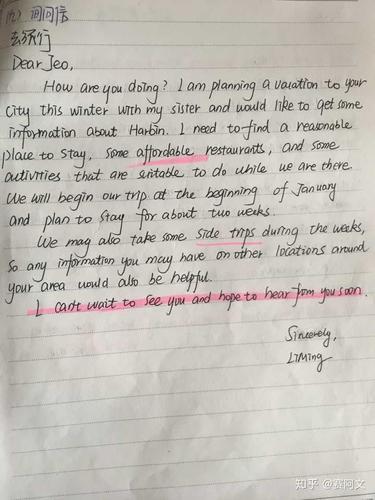 (九) 询问信
去旅行
Dear Jeo,
How are you doing? I am planning a vacation to your
City this winter with my sister and would like to get some
information about Harbin. I need to find a reasonable
place to stay, some affordable restaurants, and some
activities that are suitable to do while we are there.
We will begin our trip at the beginning of January
and plan to stay for about two weeks.
We may also take some side trips during the weeks,
So any information you may have on other locations around
your area would also be helpful.
I can't wait to see you and hope to hear from you soon.
Sincerely,
LiMing
知乎 @赛阿文